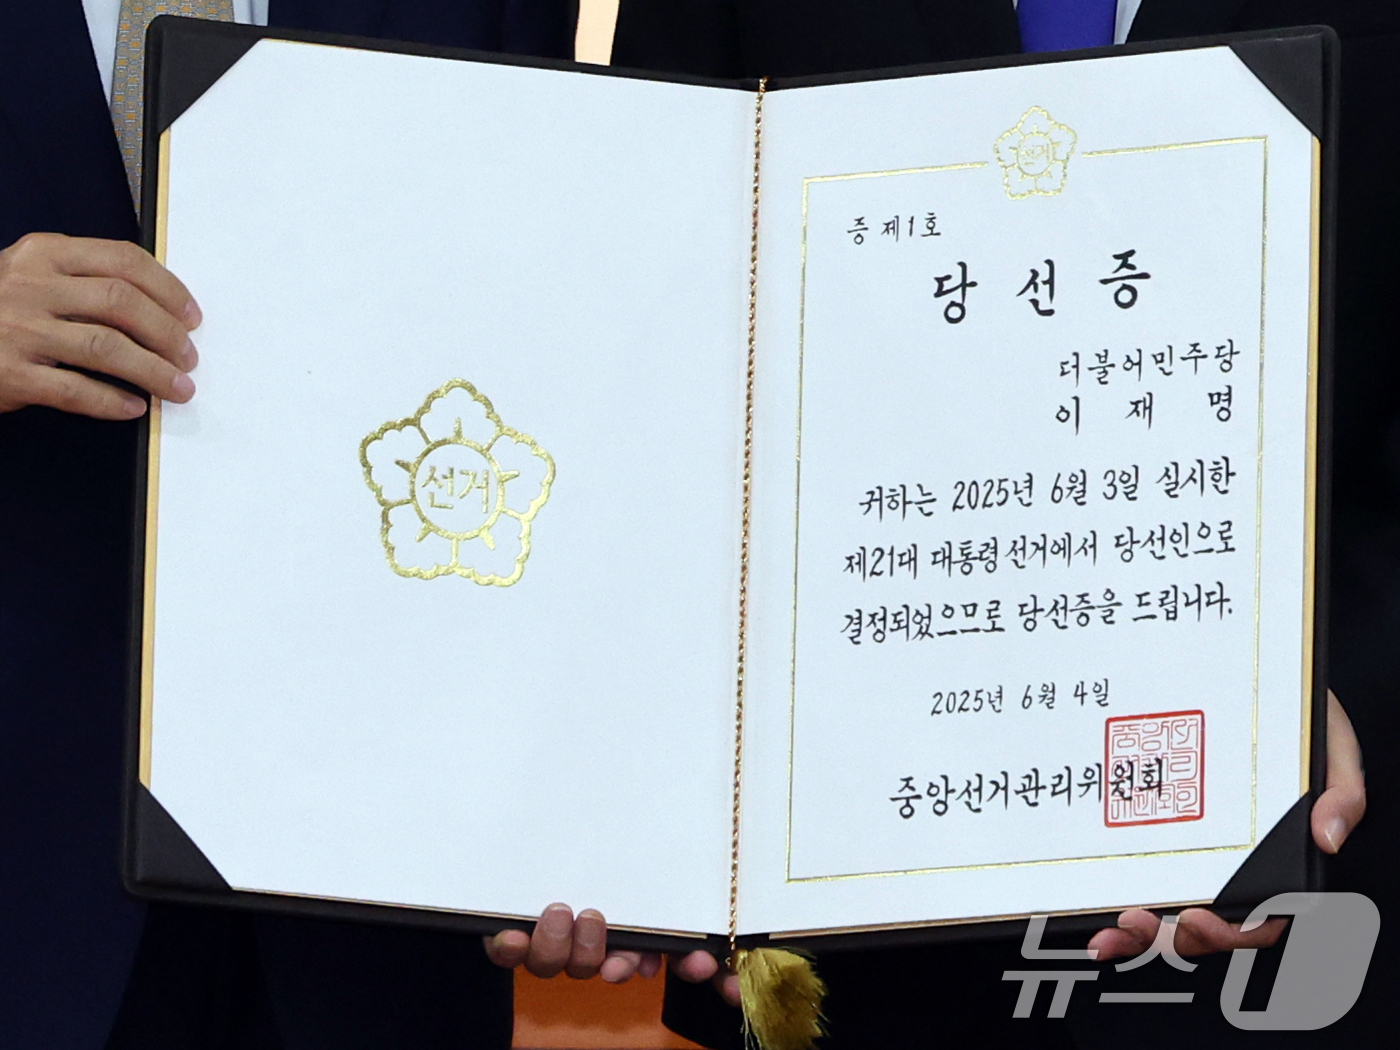 선거
선거
증 제1호
당선증
더불어민주당
이재명
귀하는 2025년 6월 3일 실시한
제21대 대통령선거에서 당선인으로
결정되었으므로 당선증을 드립니다.
2025년 6월 4일
중앙선거관리위원회
뉴스1